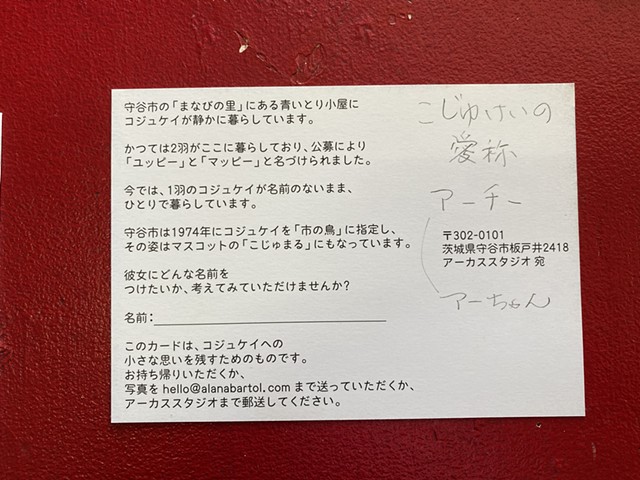 守谷市の「まなびの里」にある青いとり小屋に
コジュケイが静かに暮らしています。
かつては2羽がここに暮らしており、公募により
「ユッピー」と「マッピー」と名づけられました。
今では、1羽のコジュケイが名前のないまま、
ひとりで暮らしています。
守谷市は1974年にコジュケイを「市の鳥」に指定し、
その姿はマスコットの「こじゅまる」にもなっています。
彼女にどんな名前を
つけたいか、考えてみていただけませんか?
名前:
このカードは、コジュケイへの
小さな思いを残すためのものです。
お持ち帰りいただくか、
写真を hello@alanabartol.com まで送っていただくか、
アーカススタジオまで郵送してください。
こじゅけいの
愛称
アーチー
〒302-0101
茨城県守谷市板戸井2418
アーカススタジオ 宛
アーちゃん